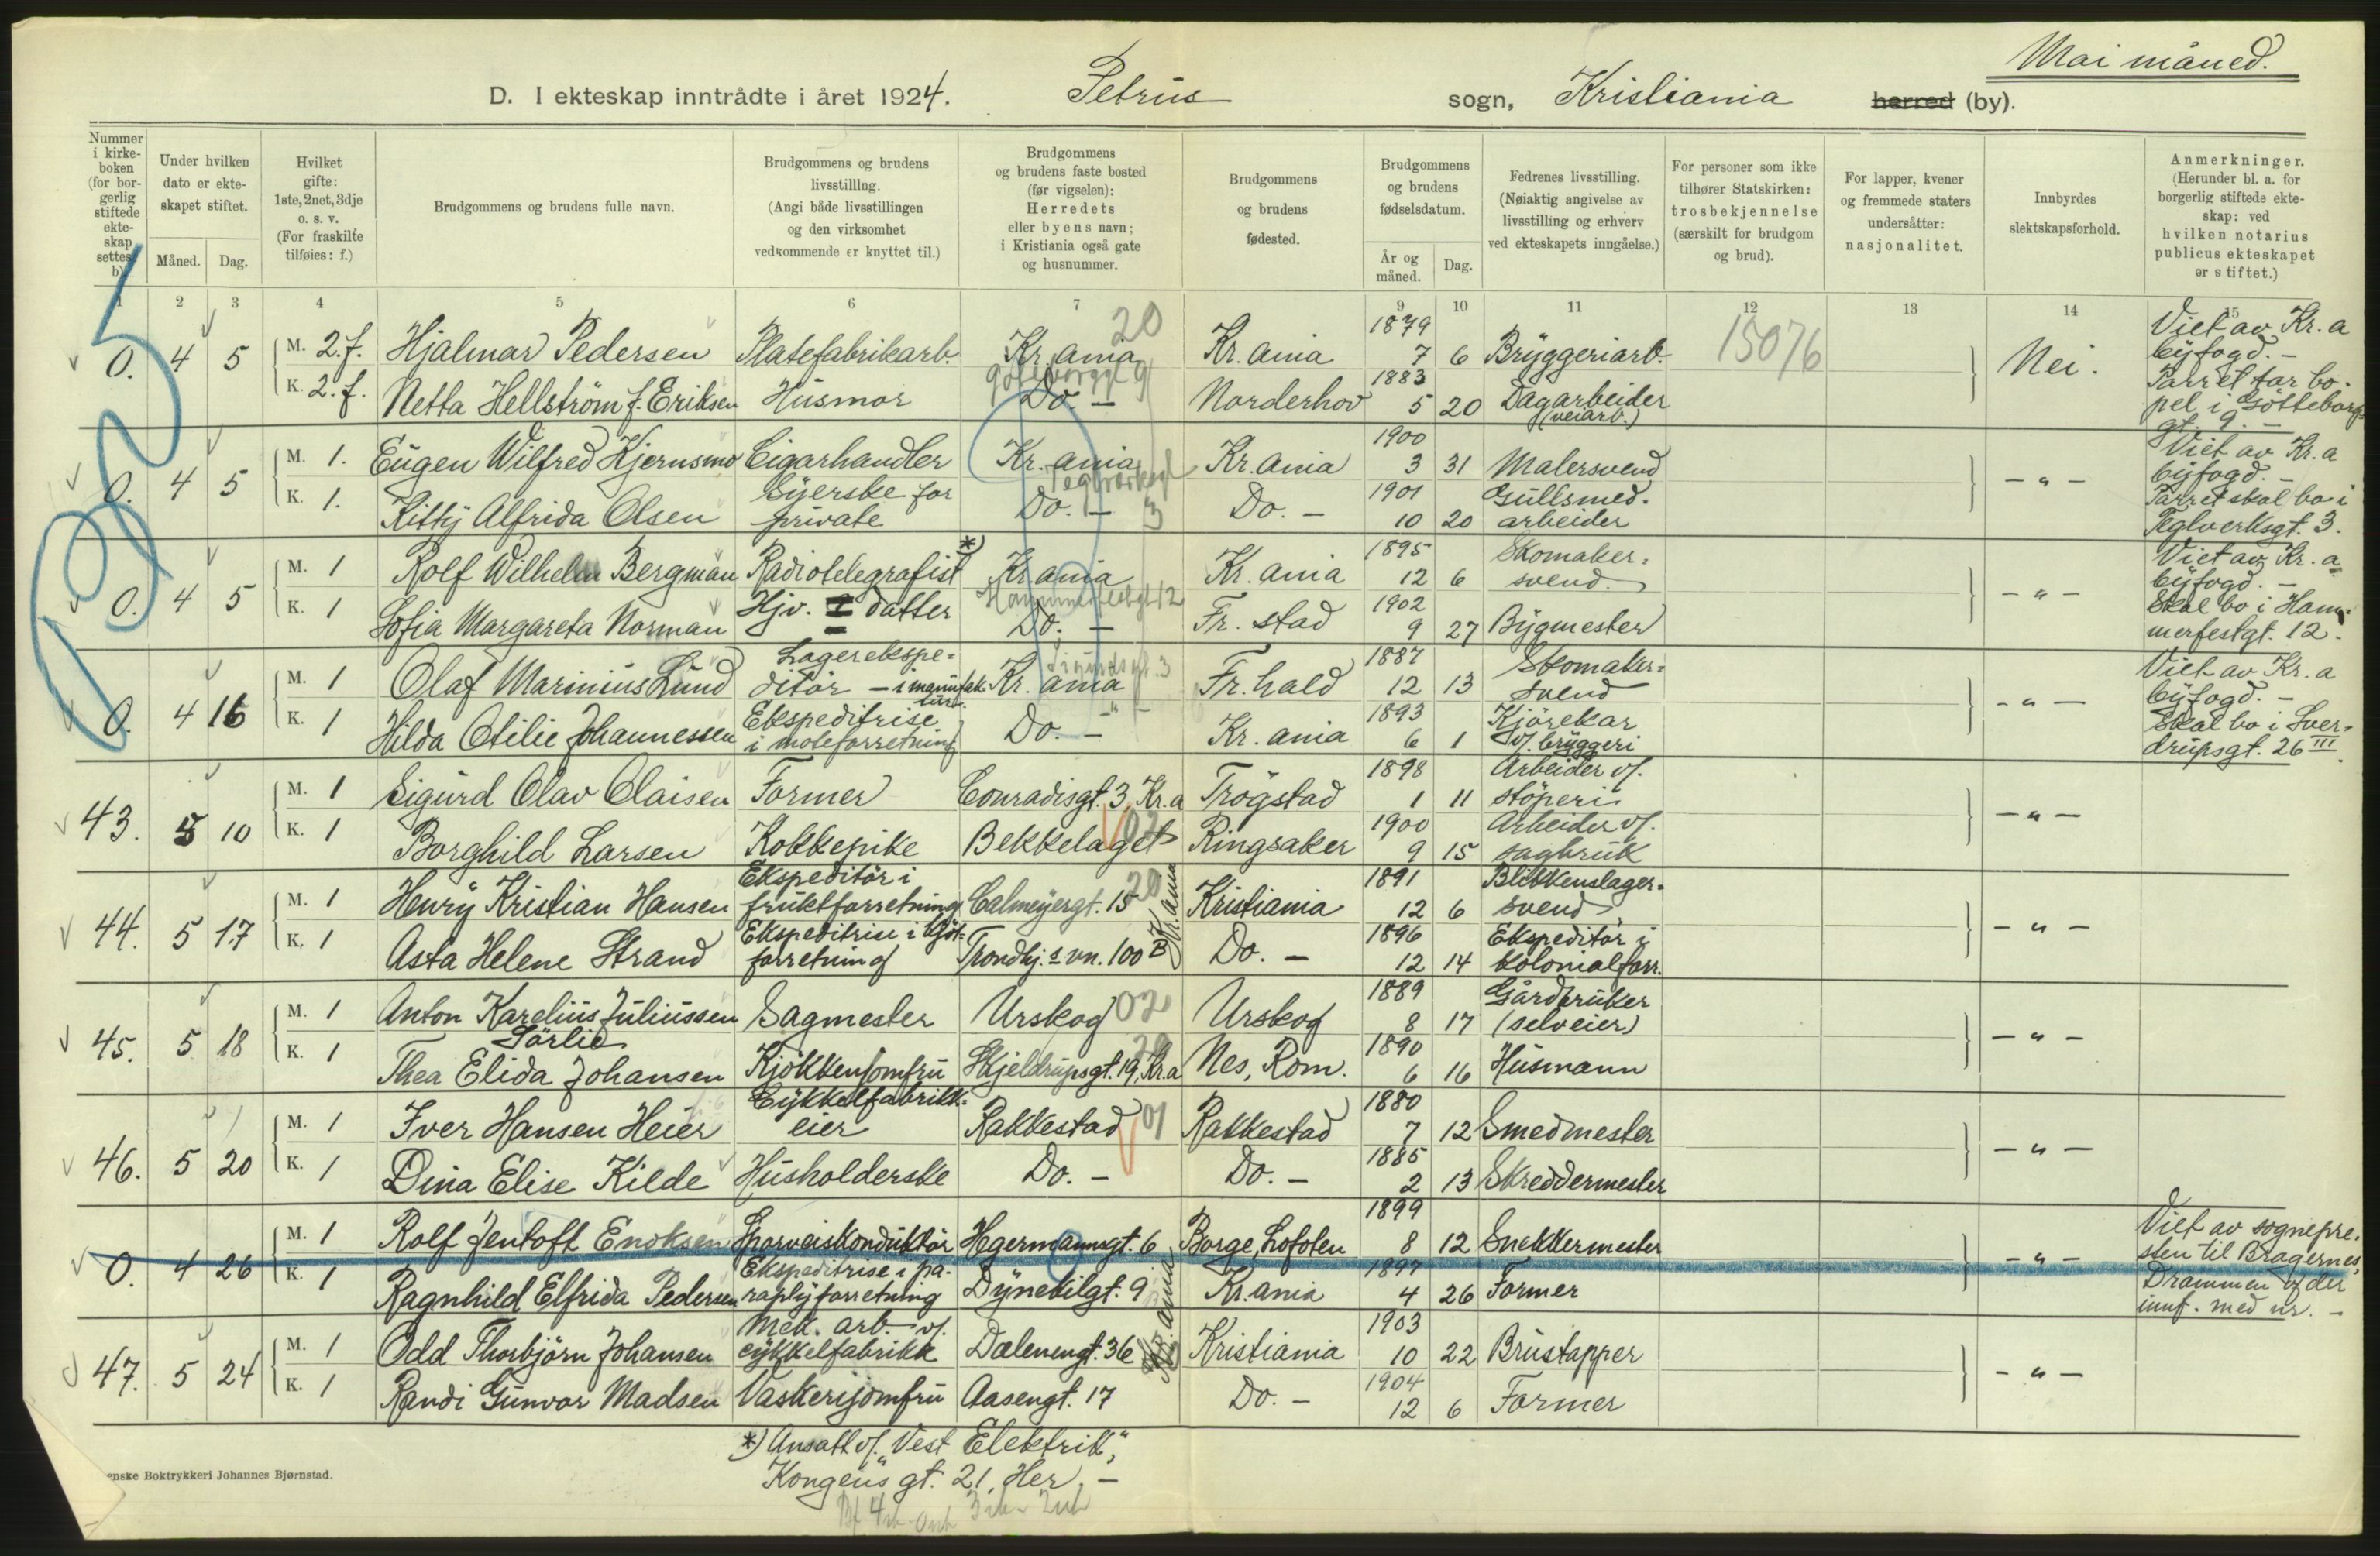 Mai måned.
D. I ekteskap inntrådte i året 1924. Petrus sogn, Kristiania herred (by).
Nummer i kirkeboken (for borgerlig stiftede ekteskap settes b)
Under hvilken dato er ekteskapet stiftet. Måned. Dag.
Hvilket gifte: 1ste, 2net, 3dje o. s. v. (For fraskilte tilføies: f.)
Brudgommens og brudens fulle navn.
Brudgommens og brudens livsstilling. (Angi både livsstillingen og den virksomhet vedkommende er knyttet til.)
Brudgommens og brudens faste bosted (før vigselen): Herredets eller byens navn; i Kristiania også gate og husnummer.
Brudgommens og brudens fødested.
Brudgommens og brudens fødselsdatum. År og måned. Dag.
Fedrenes livsstilling. (Nøiaktig angivelse av livsstilling og erhverv ved ekteskapets inngåelse.)
For personer som ikke tilhører Statskirken: trosbekjennelse (særskilt for brudgom og brud).
For lapper, kvener og fremmede staters undersåtter: nasjonalitet.
Innbyrdes slektskapsforhold.
Anmerkninger. (Herunder bl. a. for borgerlig stiftede ekteskap: ved hvilken notarius publicus ekteskapet er stiftet.)
1 2 3 4 5 6 7 9 10 11 12 13 14 15
0. 4 5 M. 2. f. Hjalmar Pedersen Platefabrikarb. Kr. ania 20 Kr. ania 1879 7 6 Bryggeriarb. 15076 Nei. Viet av Kr. a byfogd. –
K. 2. f. Netta Hellström f. Eriksen Husmor Göteborggt 9 Do. – Norderhov 1883 5 20 Dagarbeider (veiarb.) Parret tar bopel i Götteborggt. 9. –
0. 4 5 M. 1. Eugen Wilfred Kjernsmo Cigarhandler Kr. ania Kr. ania 1900 3 31 Malersvend – " – Viet av Kr. a byfogd. –
K. 1. Kitty Alfrida Olsen Syerske for private Teglverksgt 3 Do. – Do. – 1901 10 20 Gullsmed. arbeider Parret skal bo i Teglverksgt. 3.
0. 4 5 M. 1 Rolf Wilhelm Bergman Radiotelegrafist *) Kr. ania Kr. ania 1895 12 6 Skomaker= svend – " – Viet av Kr. a byfogd. –
K. 1 Sofia Margareta Norman Hjv. datter Hammerfestgt 12 Do. – Fr. stad 1902 9 27 Bygmester Skal bo i Hammerfestgt. 12.
0. 4 16 M. 1 Olaf Marinius Lund Lagerekspe= ditör – i manufaktur. Kr. ania Fr. hald 1887 12 13 Skomaker= svend – " – Viet av Kr. a byfogd. –
K. 1 Hilda Otilie Johannessen Ekspeditrise i moteforretning Do. – Kr. ania 1893 6 1 Kjörekar v/. bryggeri Skal bo i Sver= drupsgt. 26 III.
43. 5 10 M. 1 Sigurd Olav Olaisen Former Conradisgt. 3, Kr. a Trögstad 1898 1 11 Arbeider v/. stöperi – " –
K. 1 Borghild Larsen Kokkepike Bekkelaget 02 Ringsaker 1900 9 15 Arbeider v/. sagbruk
44. 5 17 M. 1 Henry Kristian Hansen Ekspeditör i fruktforretning Calmeyergt. 15 20 Kr. ania Kristiania 1891 12 6 Blikkenslager= svend – " –
K. 1 Asta Helene Strand Ekspeditrise i kjöt= forretning Trondhj.s vn. 100 B Do. – 1896 12 14 Ekspeditör i kolonialforr.
45. 5 18 M. 1 Anton Karelius Juliussen Sörlie Sagmester Urskog 02 Urskog 1889 8 17 Gårdbruker (selveier) – " –
K. 1 Thea Elida Johansen Kjökkenjomfru Skjeldrupsgt. 19, Kr. a 20 Nes, Rom. 1890 6 16 Husmann
46. 5 20 M. 1 Iver Hansen Heier Cykkelfabrikk= eier Rakkestad 01 Rakkestad 1880 7 12 Smedmester – " –
K. 1 Dina Elise Kilde Husholderske Do. – Do. – 1885 2 13 Skreddermester
0. 4 26 M. 1 Rolf Jentoft Enoksen Sporveiskonduktör Hegermannsgt. 6 Borge, Lofoten 1899 8 12 Snekkermester – " – Viet av sognepre= sten til Bragernes,
K. 1 Ragnhild Elfrida Pedersen Ekspeditrise i pa= raplyforretning Dynekilgt. 9 Kr. ania Kr. ania 1897 4 26 Former Drammen og der innf. med nr. –
47. 5 24 M. 1 Odd Thorbjörn Johansen Mek. arb. v/. cykkelfabrikk Dælenengt. 36 Kr. ania Kristiania 1903 10 22 Brustapper – " –
K. 1 Randi Gunvor Madsen Vaskerijomfru Aasengt. 17 Do. – 1904 12 6 Former
*) Ansatt v/. "Vest Elektrik",
Kongens gt. 21, Her. –
enske Boktrykkeri Johannes Bjørnstad.